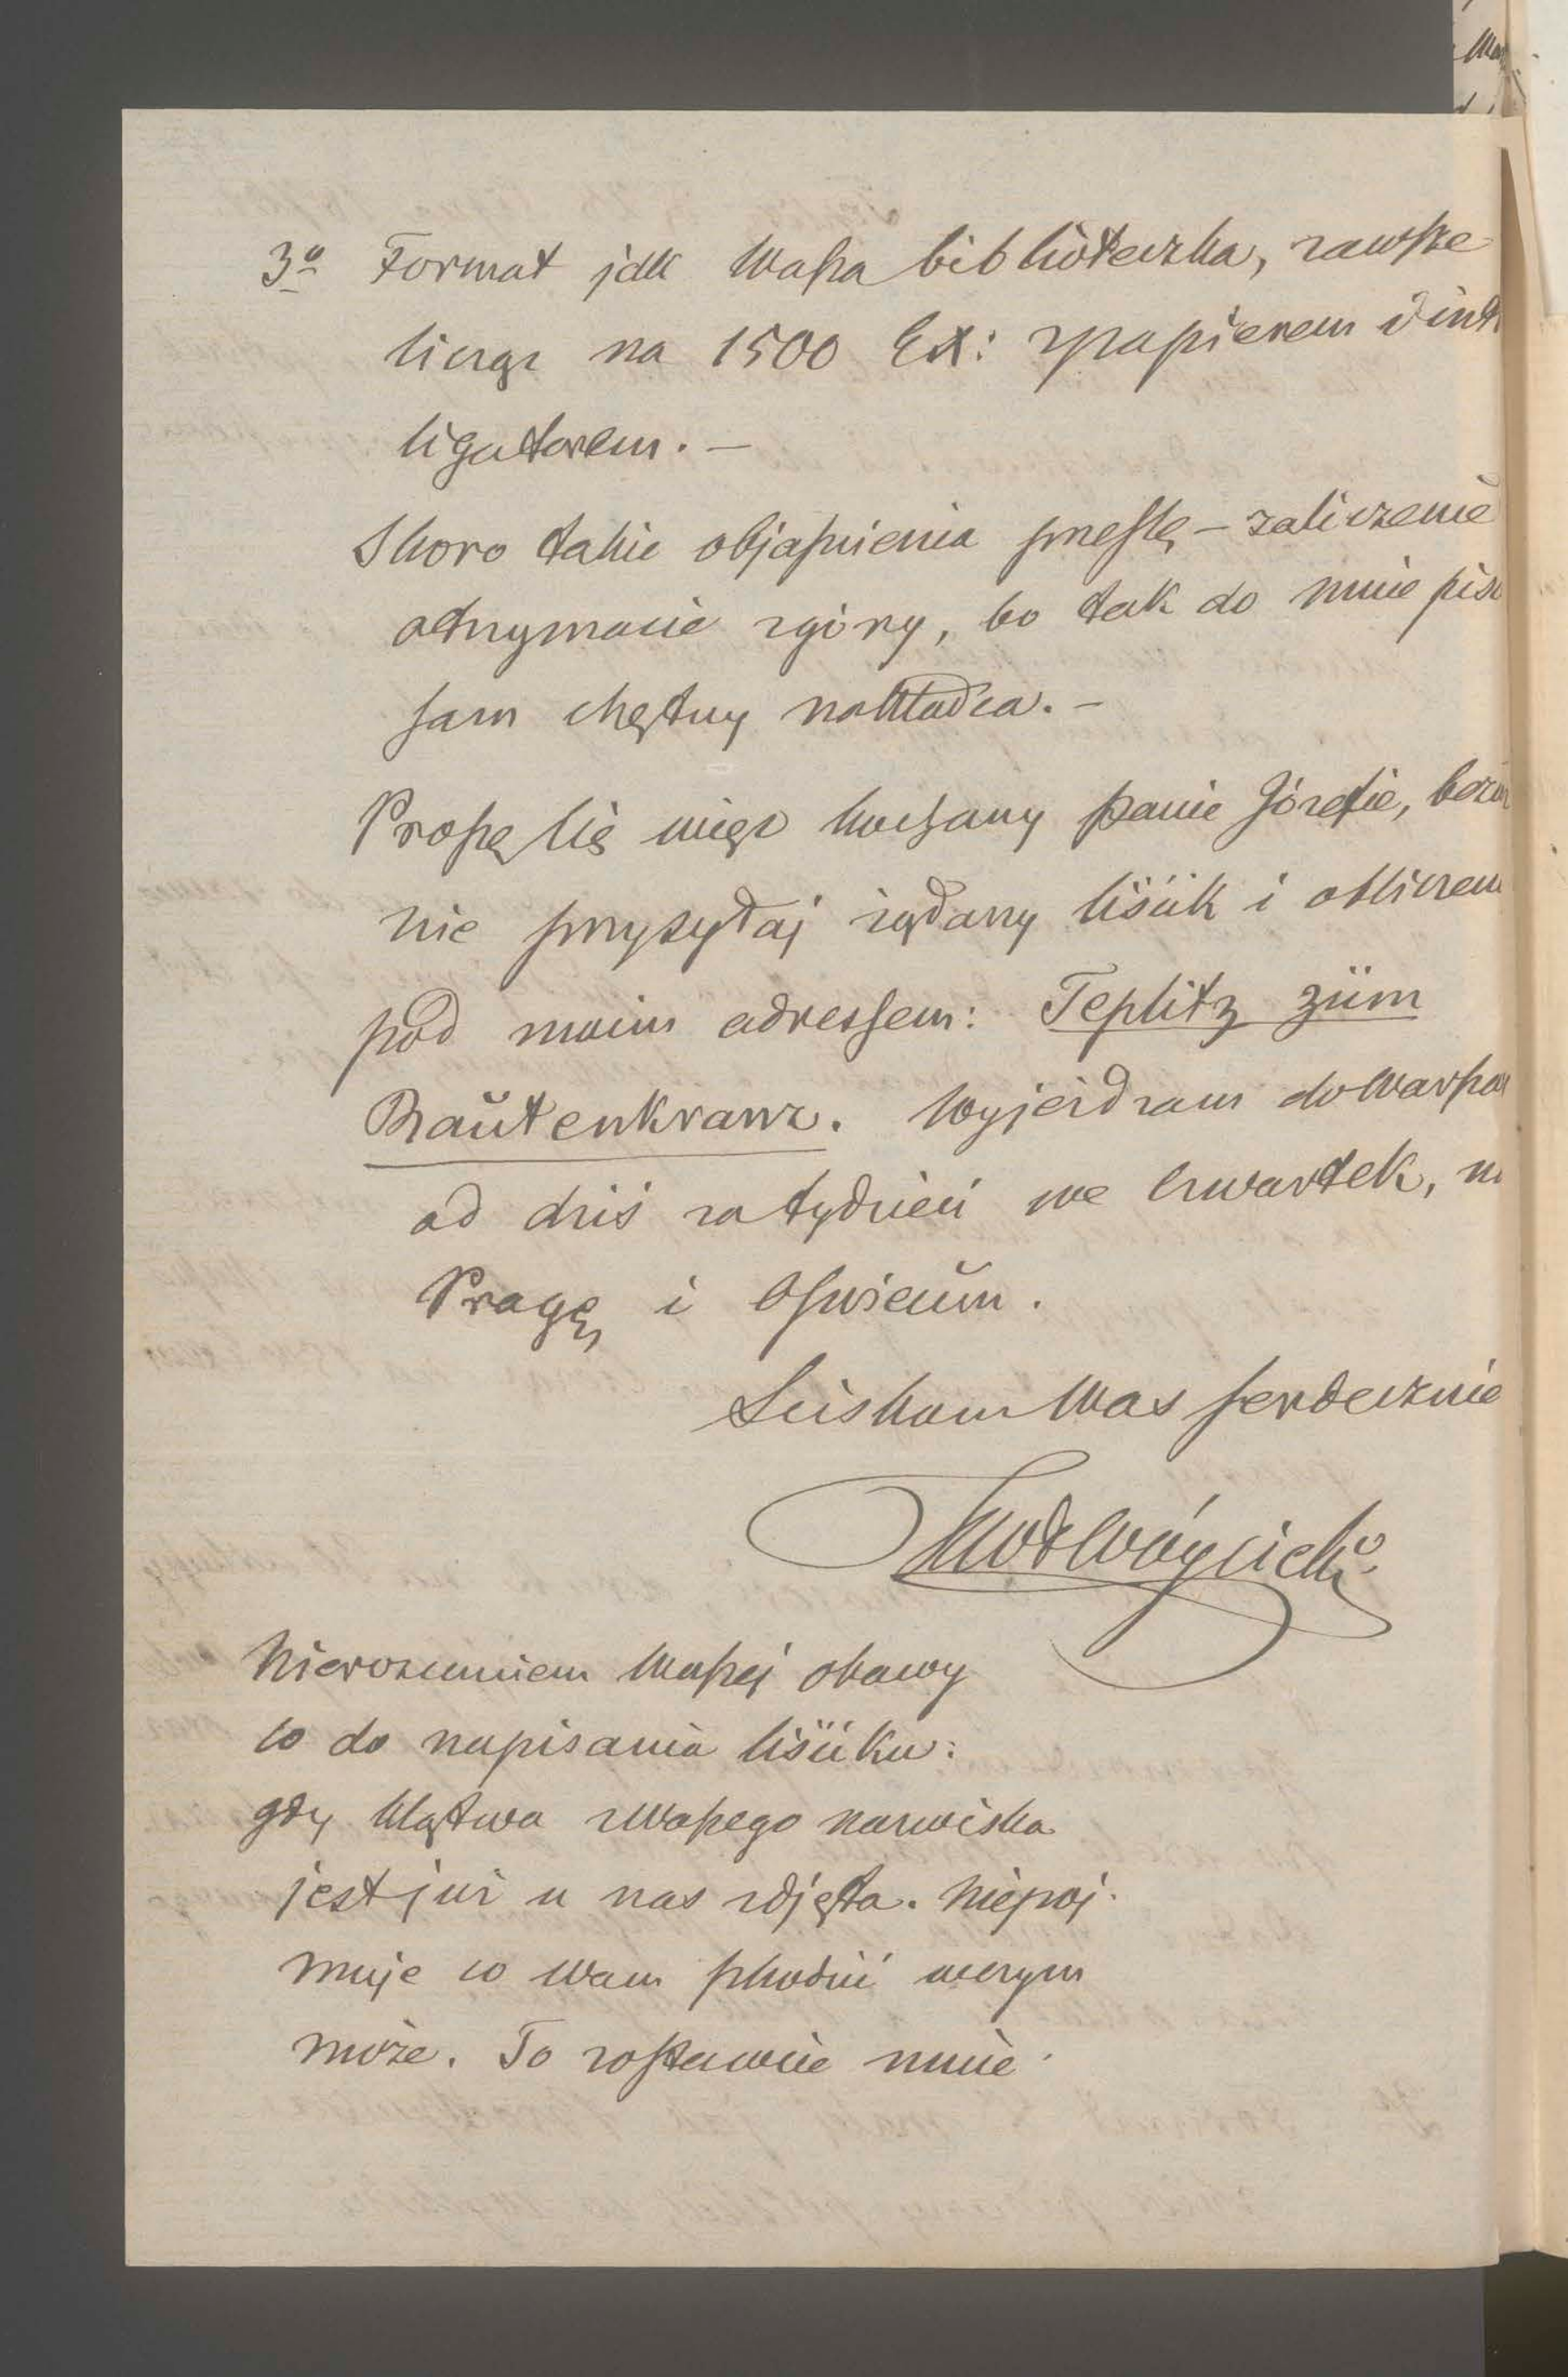 3o Format jak Wasza biblioteczka, zawsze
licząc na 1500 Ex: z papierem i int
ligatorem. –
Skoro takie objaśnienia prześlę – zaliczenie
otrzymacie z góry, bo tak do mnie pisa
sam chętny nakładca. –
Proszę Cię więc kochany panie Józefie, bezw
nie przysyłaj żądany liścik i obliczen
pod moim adressem: Teplitz züm
Raŭtenkranz. Wyjeżdzam do Warsza
od dziś za tydzień we czwartek, na
Pragę i Oświecim.
Ściskam Was serdecznie
KWł Wóycicki
Nierozumiem Waszej obawy
co do napisania liściku:
gdy klątwa z Waszego nazwiska
jest już u nas zdjęta. Niepoj-
muje co Wam szkodzić w czem
może. To zostawcie mnie